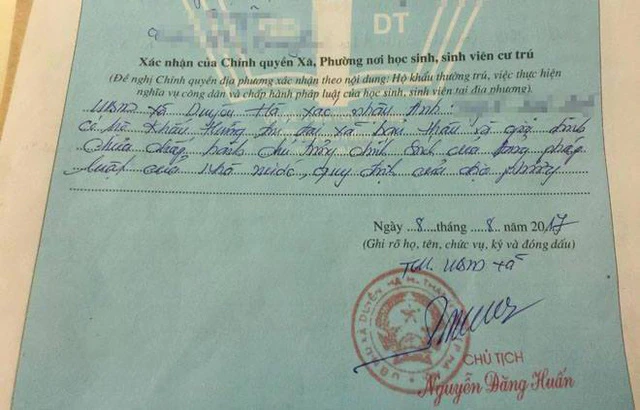 DT
Xác nhận của Chính quyền Xã, Phường nơi học sinh, sinh viên cư trú
(Đề nghị Chính quyền địa phương xác nhận theo nội dung: Hộ khẩu thường trú, việc thực hiện
nghĩa vụ công dân và chấp hành pháp luật của học sinh, sinh viên tại địa phương).
UBND xã Duyên Hà, xác nhận Anh:
có hộ khẩu thường trú tại xã bản thân và gia đình
chưa chấp hành chủ trương chính sách của Đảng pháp
luật của nhà nước, quy định của địa phương
Ngày 8 tháng 8 năm 2017
(Ghi rõ họ, tên, chức vụ, ký và đóng dấu)
TM. UBND xã
CHỦ TỊCH
Nguyễn Đăng Huấn